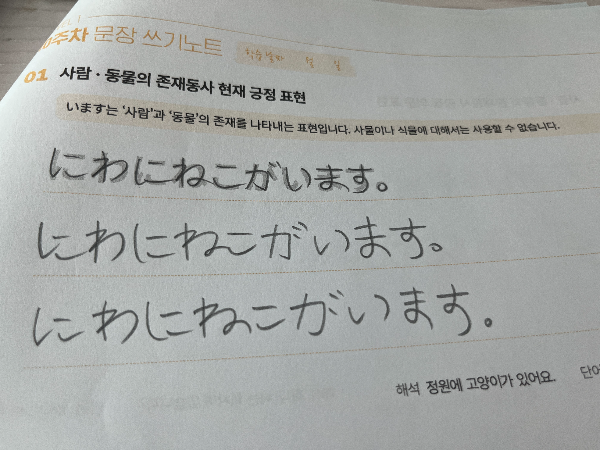 주차 문장 쓰기노트
학습날짜 월 일
01 사람·동물의 존재동사 현재 긍정 표현
います는 '사람'과 '동물'의 존재를 나타내는 표현입니다. 사물이나 식물에 대해서는 사용할 수 없습니다.
にわにねこがいます。
にわにねこがいます。
にわにねこがいます。
해석 정원에 고양이가 있어요. 단어